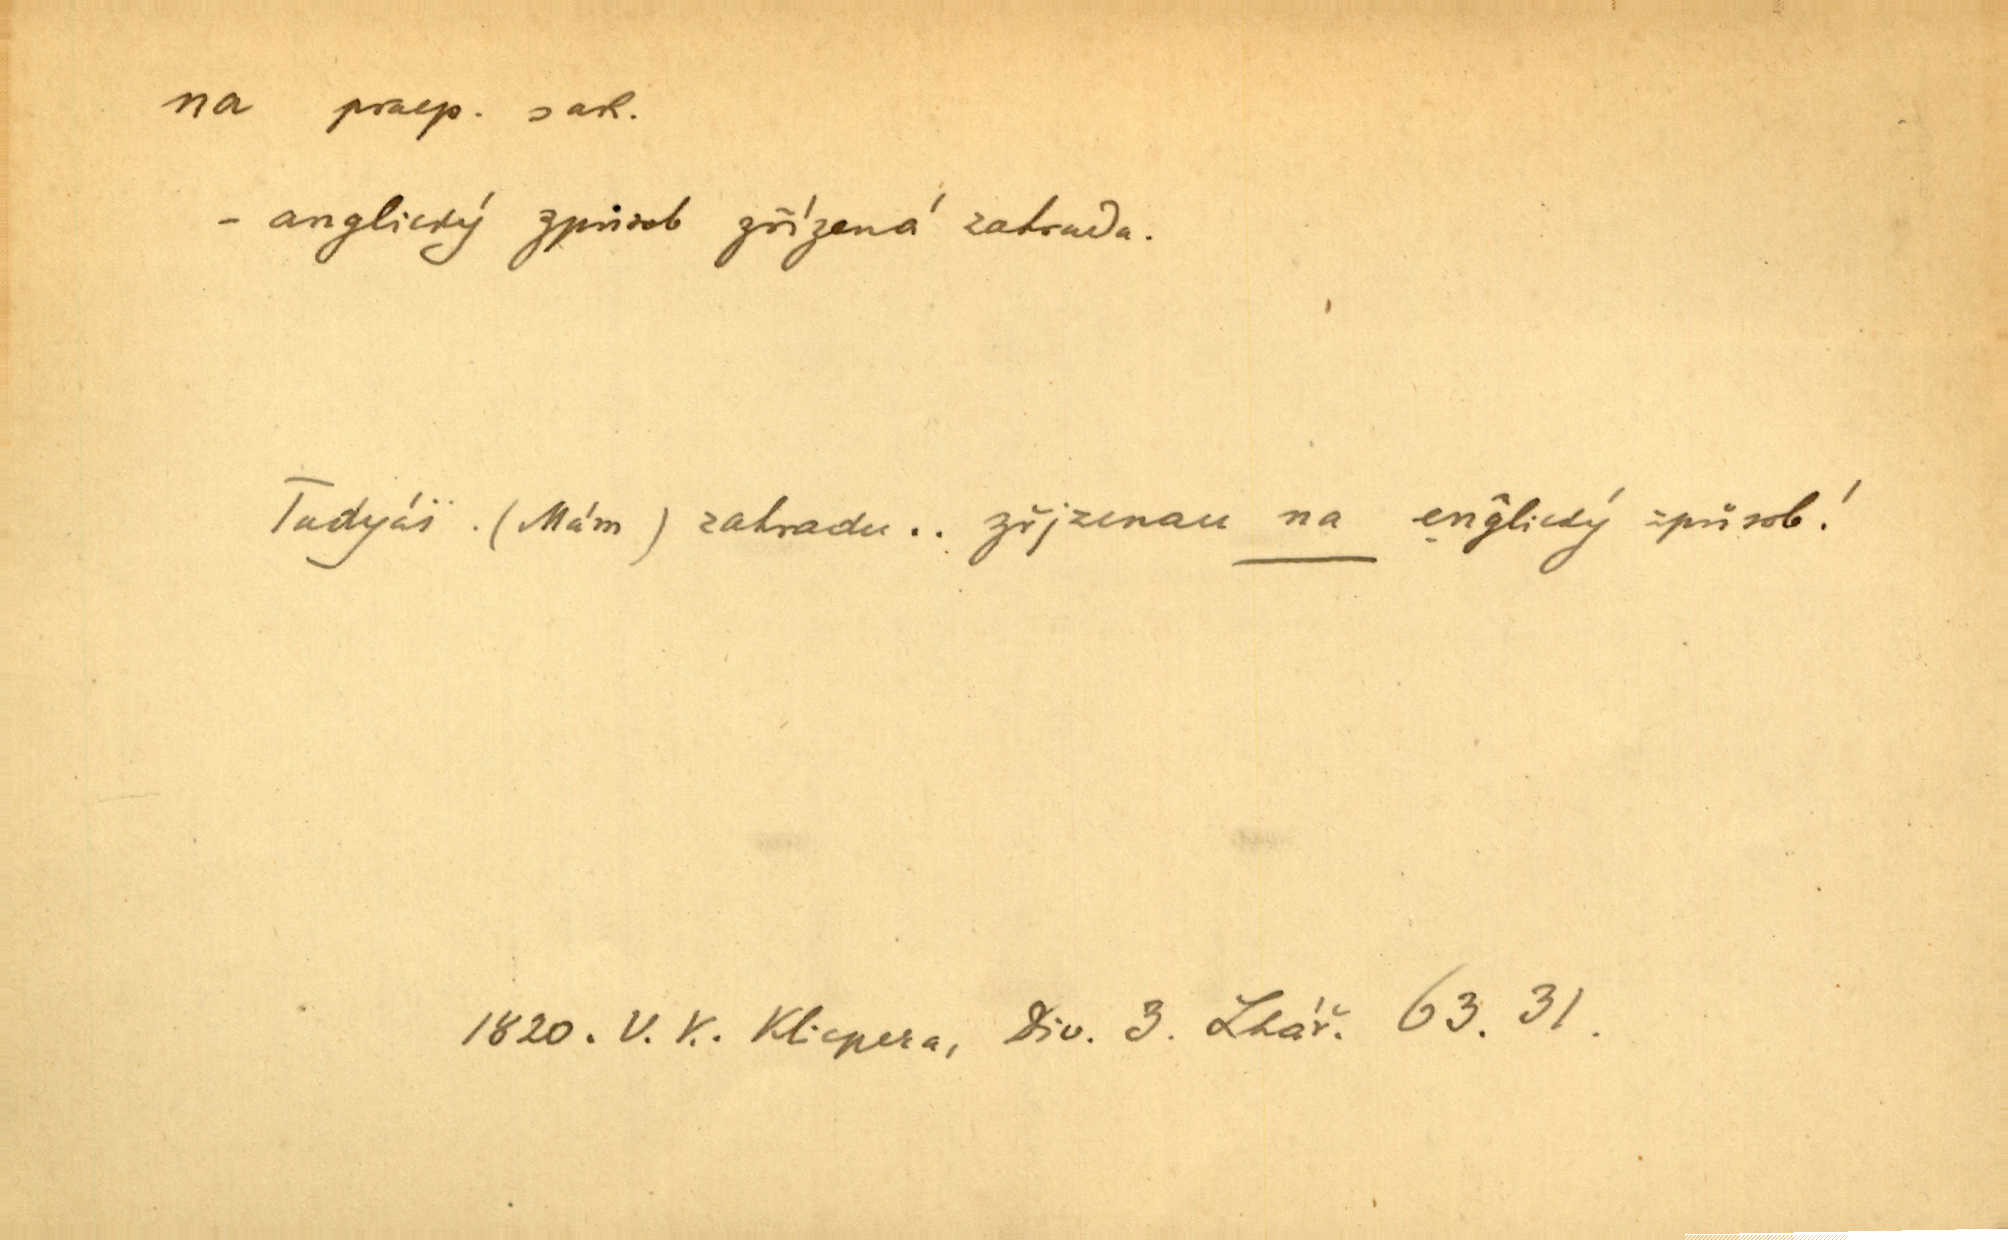 na praep. s ak.
- anglický způsob zřízená zahrada.
Tadyáš . (Mám) zahradu .. zřjzenau na enĝlický způsob!
1820. V. K. Klicpera, Div. 3. Lhář. 63. 31.